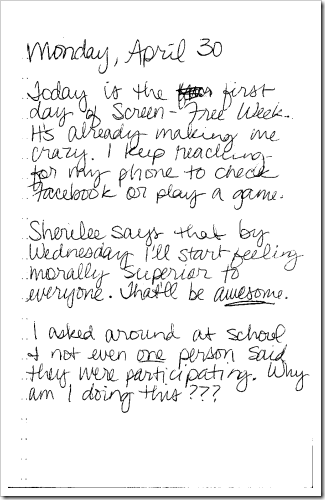 Monday, April 30
Today is the first
day of Screen-Free Week.
It's already making me
crazy. I keep reaching
for my phone to check
Facebook or play a game.
Sherilee says that by
Wednesday I'll start feeling
morally superior to
everyone. That'll be awesome.
I asked around at school
& not even one person said
they were participating. Why
am I doing this???